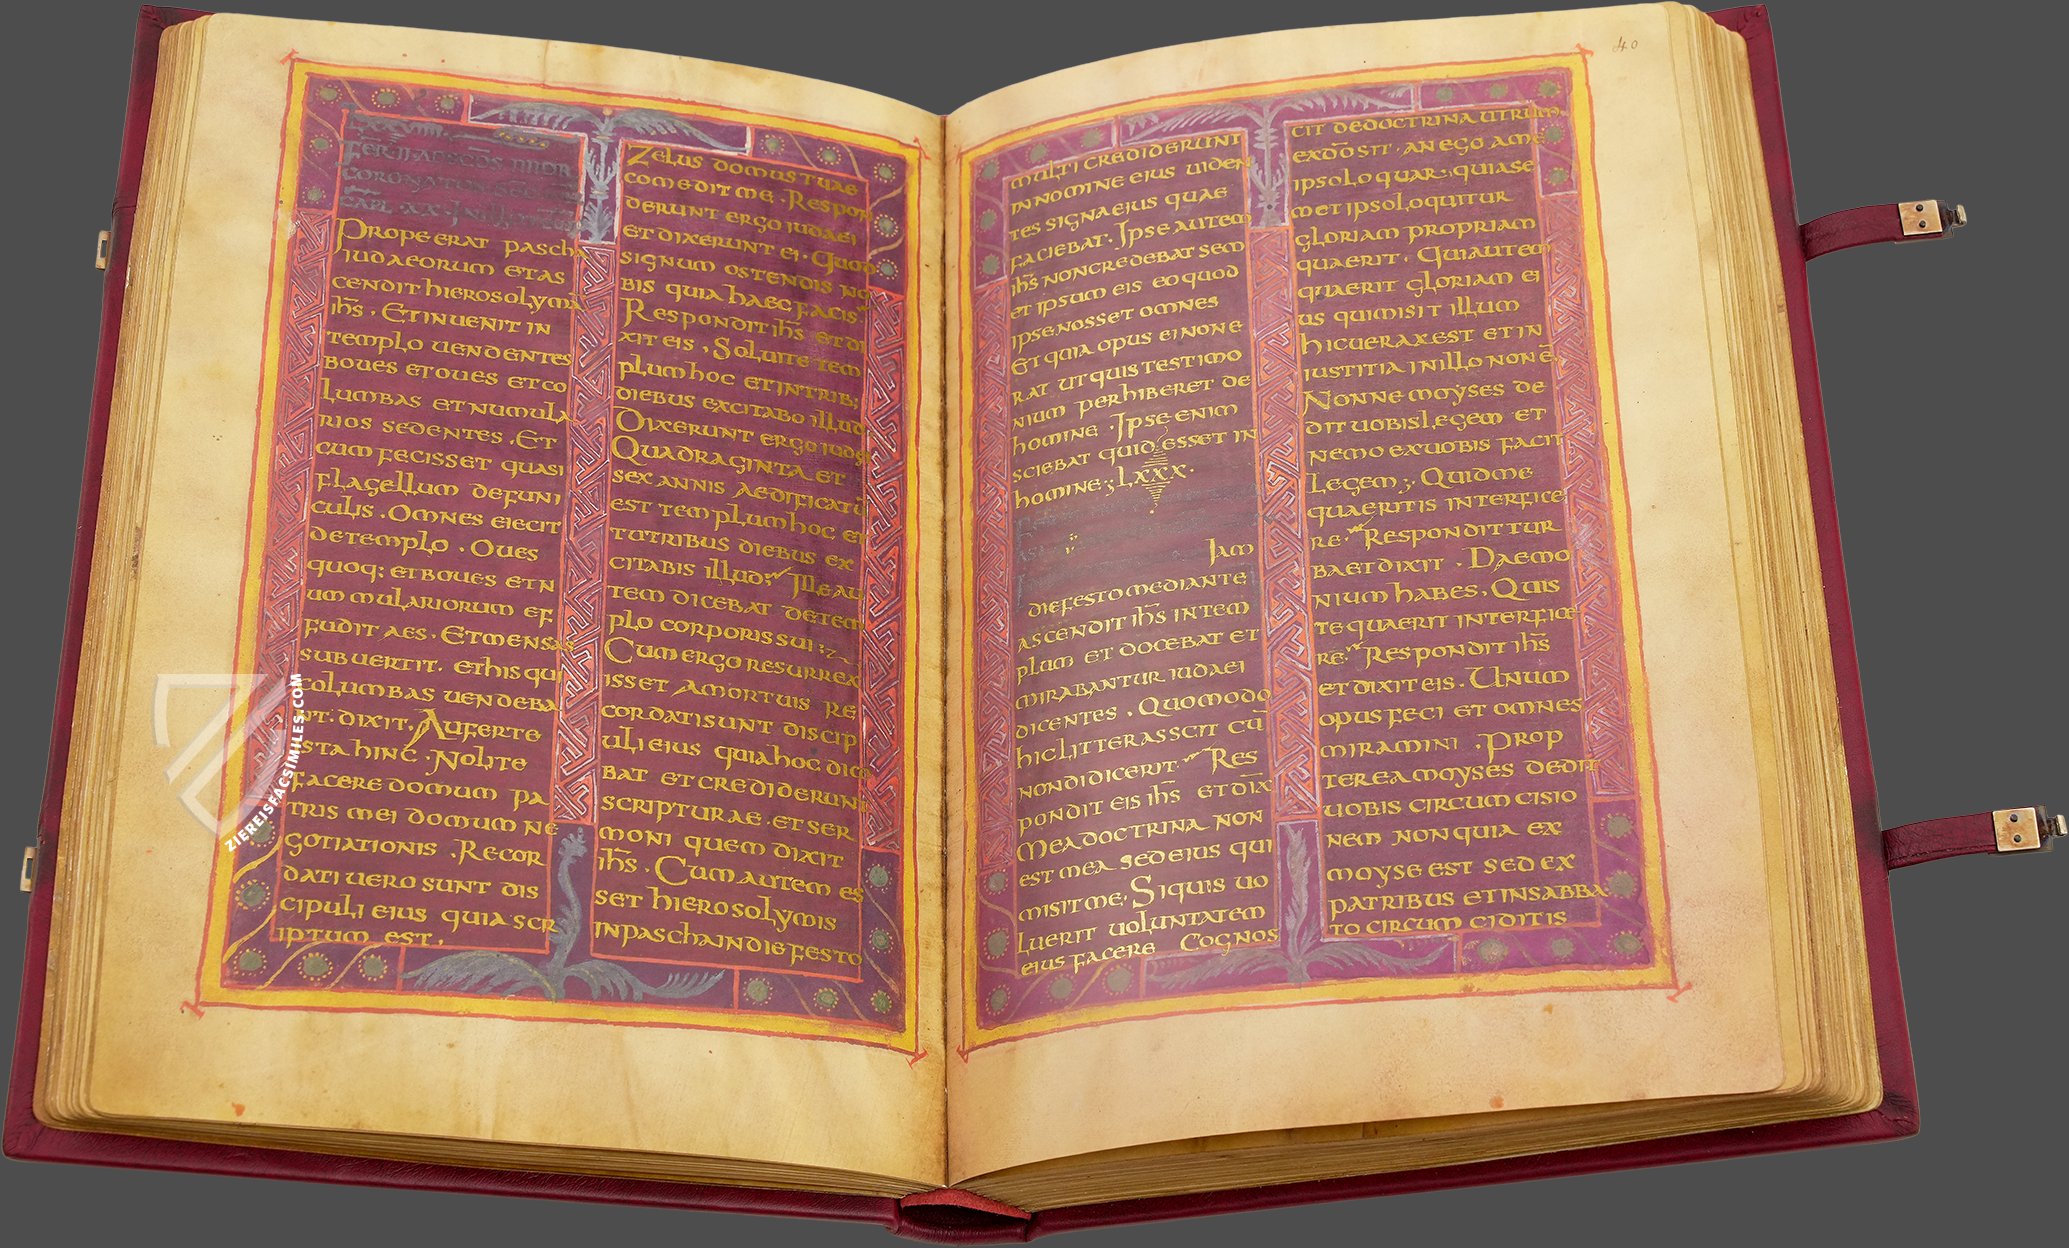 LXXVIIII.
FER II AD SCOS IIII OR
CORONATOR
CAPL XX
PROPE ERAT PASCHA
IUDAEORUM ET AS
CENDIT HIEROSOLYMA
IHS. ET INUENIT IN
TEMPLO UENDENTES
BOUES ET OUES ET CO
LUMBAS ET NUMULA
RIOS SEDENTES. ET
CUM FECISSET QUASI
FLAGELLUM DE FUNI
CULIS. OMNES EIECIT
DE TEMPLO. OUES
QUOQ; ET BOUES ET N
UMMULARIORUM EF
FUDIT AES. ET MENSAS
SUBUERTIT. ET HIS QUI
COLUMBAS UENDEBA
NT. DIXIT, AUFERTE
ISTA HINC. NOLITE
FACERE DOMUM PA
TRIS MEI DOMUM NE
GOTIATIONIS. RECOR
DATI UERO SUNT DIS
CIPULI EIUS QUIA SCR
IPTUM EST.
ZELUS DOMUS TUAE
COMEDIT ME. RESPON
DERUNT ERGO IUDAEI
ET DIXERUNT EI. QUOD
SIGNUM OSTENDIS NO
BIS QUIA HAEC FACIS
RESPONDIT IHS ET DI
XIT EIS, SOLUITE TEM
PLUM HOC ET IN TRIB;
DIEBUS EXCITABO ILLUD
DIXERUNT ERGO IUDE
QUADRAGINTA ET
SEX ANNIS AEDIFICATŪ
EST TEMPLUM HOC ET
TU TRIBUS DIEBUS EX
CITABIS ILLUD; ILLE AU
TEM DICEBAT DE TEM
PLO CORPORIS SUI;
CUM ERGO RESURREX
ISSET A MORTUIS RE
CORDATI SUNT DISCIP
ULI EIUS QUIA HOC DICE
BAT ET CREDIDERUNT
SCRIPTURAE. ET SER
MONI QUEM DIXIT
IHS. CUM AUTEM ES
SET HIEROSOLYMIS
IN PASCHA IN DIE FESTO
40
MULTI CREDIDERUNT
IN NOMINE EIUS UIDEN
TES SIGNA EIUS QUAE
FACIEBAT. IPSE AUTEM
IHS NON CREDEBAT SEM
ET IPSUM EIS EO QUOD
IPSE NOSSET OMNES
ET QUIA OPUS EI NON E
RAT UT QUIS TESTIMO
NIUM PERHIBERET DE
HOMINE. IPSE ENIM
SCIEBAT QUID ESSET IN
HOMINE; LXXX.
IAM
DIE FESTO MEDIANTE
ASCENDIT IHS IN TEM
PLUM ET DOCEBAT ET
MIRABANTUR IUDAEI
DICENTES. QUOMODO
HIC LITTERAS SCIT CŪ
NON DIDICERIT. RES
PONDIT EIS IHS ET DIX
MEA DOCTRINA NON
EST MEA SED EIUS QUI
MISIT ME. SI QUIS UO
LUERIT UOLUNTATEM
EIUS FACERE COGNOS
CIT DE DOCTRINA UTRUM
EX DO SIT. AN EGO A ME
IPSO LOQUAR; QUI A SE
MET IPSO LOQUITUR
GLORIAM PROPRIAM
QUAERIT. QUI AUTEM
QUAERIT GLORIAM EI
US QUI MISIT ILLUM
HIC UERAX EST ET IN
IUSTITIA IN ILLO NON Ē.
NONNE MOYSES DE
DIT UOBIS LEGEM ET
NEMO EX UOBIS FACIT
LEGEM; QUID ME
QUAERITIS INTERFICE
RE. RESPONDIT TUR
BA ET DIXIT. DAEMO
NIUM HABES. QUIS
TE QUAERIT INTERFICE
RE. RESPONDIT IHS
ET DIXIT EIS. UNUM
OPUS FECI ET OMNES
MIRAMINI. PROP
TEREA MOYSES DEDIT
UOBIS CIRCUMCISIO
NEM NON QUIA EX
MOYSE EST SED EX
PATRIBUS ET IN SABBA
TO CIRCUMCIDITIS
ZIEREISFACSIMILES.COM